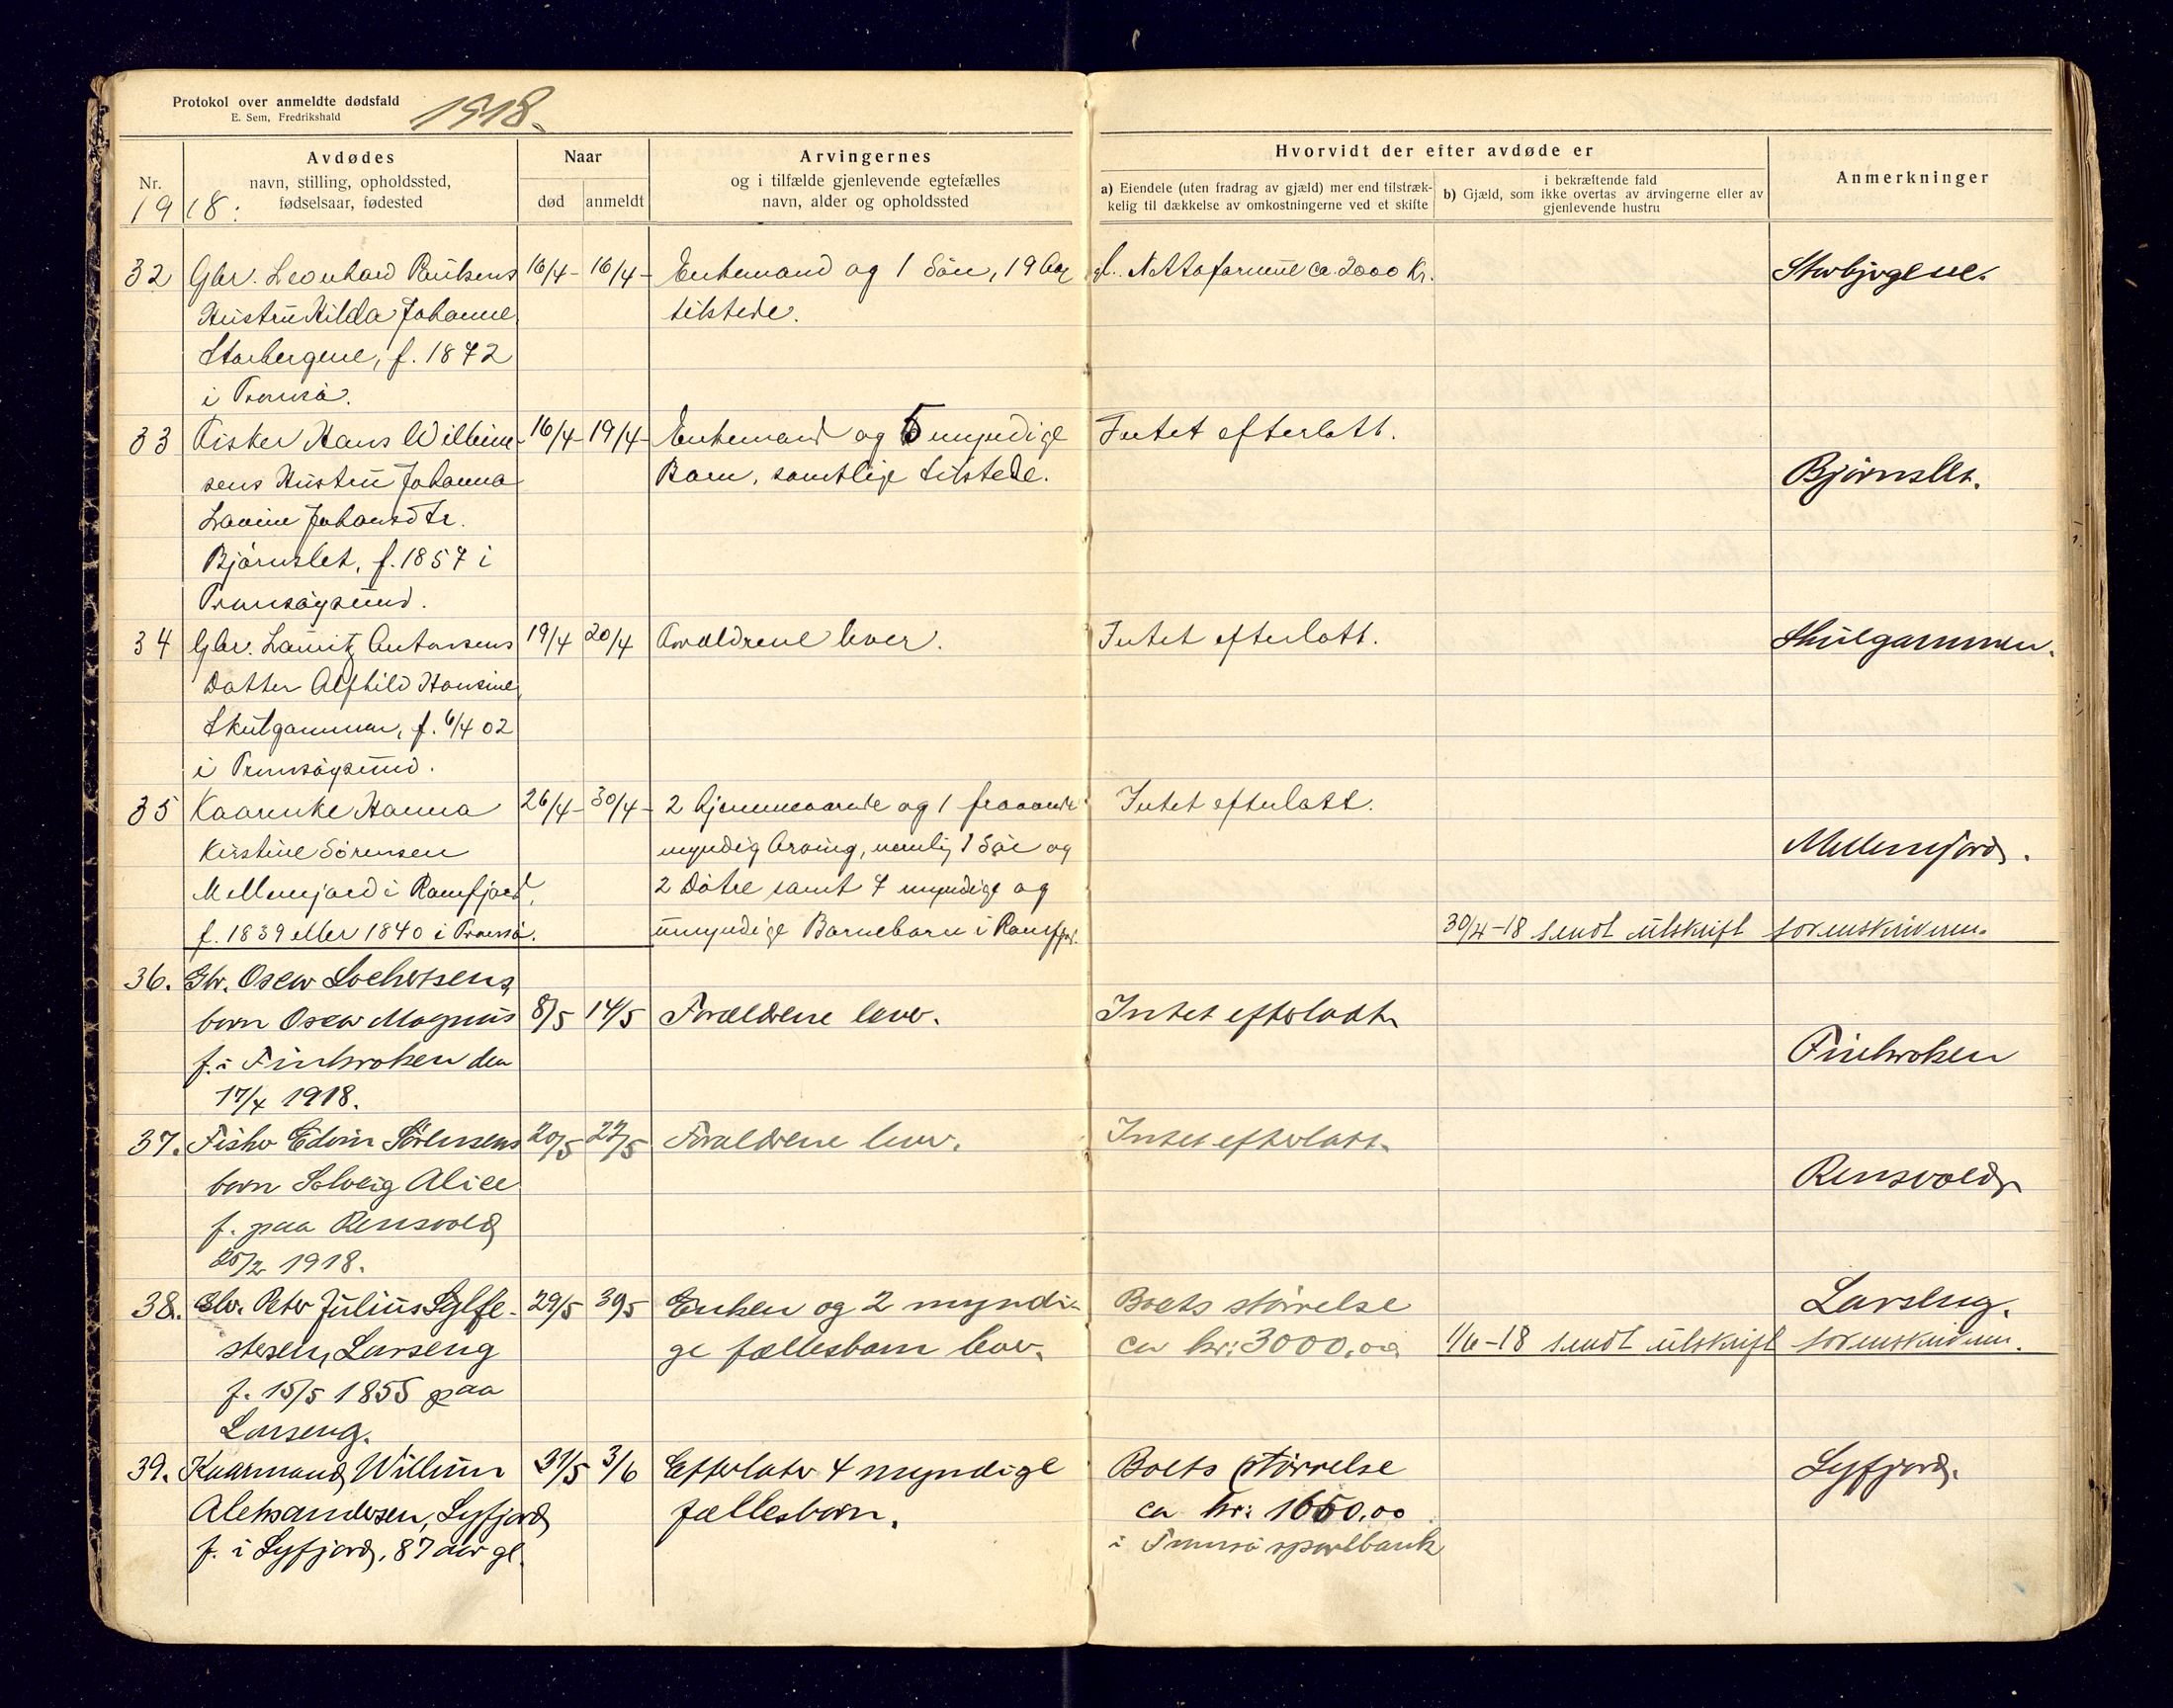 Protokol over anmeldte dødsfald
E. Sem, Fredrikshald
1918.
Nr.
1918:
Avdødes
navn, stilling, opholdssted,
fødselsaar, fødested
Naar
død
anmeldt
Arvingernes
og i tilfælde gjenlevende egtefælles
navn, alder og opholdssted
Hvorvidt der efter avdøde er
a) Eiendele (uten fradrag av gjæld) mer end tilstræk-
kelig til dækkelse av omkostningerne ved et skifte
i bekræftende fald
b) Gjæld, som ikke overtas av arvingerne eller av
gjenlevende hustru
Anmerkninger
32 Gbr. Leonhard Paulsens 16/4- 16/4- Enkemand og 1 Sön, 19 Aar gl. Nettoformue ca. 2000 Kr.
Hustru Hilda Johanne tilstede.
Storbergene, f. 1872
i Tromsö.
33 Fisker Hans Wilhelm- 16/4- 19/4- Enkemand og 5 myndige Intet efterlatt.
sens Hustru Johanna Barn, samtlige tilstede. Bjørnslet.
Lavine Johansdtr.
Björnslet, f. 1857 i
Tromsöysund.
34 Gbr. Lauritz Antonsens 19/4 20/4 Forældrene lever. Intet efterlatt. Skulgammen.
Datter Alfhild Hansine
Skulgammen, f. 6/4 02
i Tromsöysund.
35 Kaarenke Hanna 26/4- 30/4- 2 hjemmeværende og 1 Intet efterlatt.
Kirstine Sörensen myndig Arving, nemlig 1 Sön og Mellemjord.
Mellemjord i Ramfjord, 2 Døtre samt 7 myndige og
f. 1839 eller 1840 i Tromsö. umyndige Barnebarn i Ramfjord. 30/4-18 sendt utskrift sorenskriveren.
36. Gbr. Oscar Lochertsens
barn Oscar Magnus 8/5 14/5 Forældrene lever. Intet efterladt.
f. i Finkroken den Finkroken
17/4 1918.
37. Fisker Edvin Sörensens 20/5 22/5 Forældrene lever. Intet efterlatt.
barn Solveig Alice Rensvold
f. paa Rensvold
25/2 1918.
38. Gbr. Peter Julius Sylfe- 29/5 Enken og 2 myndi- Boets störrelse Larseng.
stersen, Larseng ge fællesbarn lever. ca kr: 3000,00 1/6-18 sendt utskrift sorenskriveren.
f. 15/5 1855 paa
Larseng.
39. Kaarmand Willum 31/5 3/6 Efterlater 4 myndige Boets störrelse Lyfjord.
Aleksandersen, Lyfjord fællesbörn. ca kr: 1650,00
f. i Lyfjord, 87 aar gl. i Tromsö sparebank